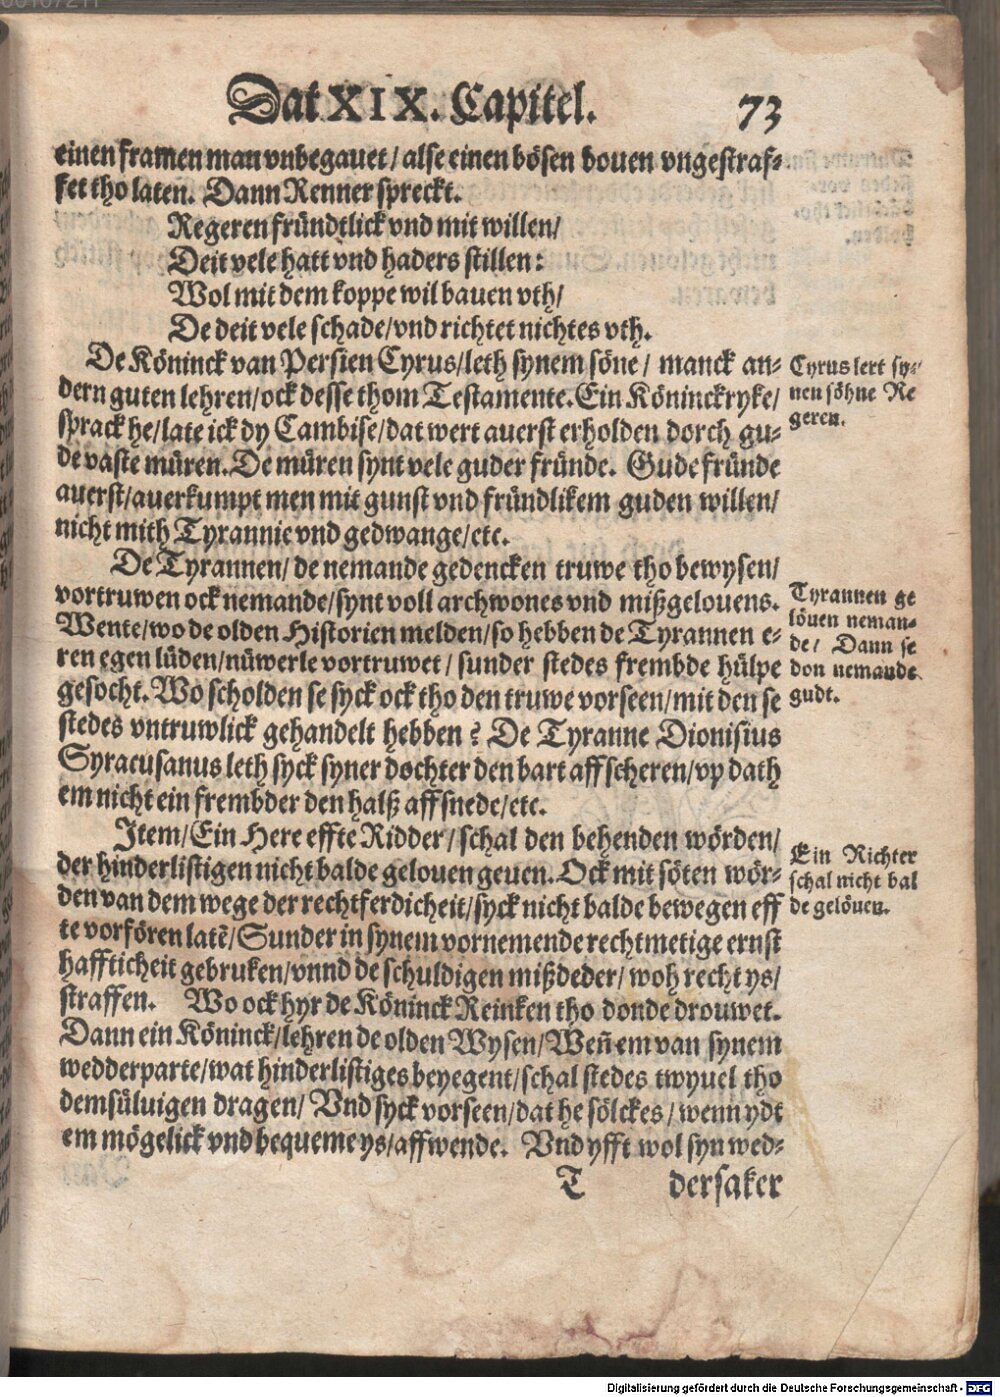 Dat XIX. Capitel. 73
einen framen man vnbegauet / alse einen bösen bouen vngestraf-
fet tho laten. Dann Renner spreckt.
Regeren fründtlick vnd mit willen /
Deit vele hatt vnd haders stillen :
Wol mit dem koppe wil bauen vth /
De deit vele schade / vnd richtet nichtes vth.
De Köninck van Persien Cyrus / leth synem söne / manck an-
dern guten lehren / ock desse thom Testamente. Ein Köninckryke /
sprack he / late ick dy Cambise / dat wert auerst erholden dorch gu-
de vaste müren. De müren synt vele guder fründe. Gude fründe
auerst / auerkumpt men mit gunst vnd fründlikem guden willen /
nicht mith Tyrannie vnd gedwange / etc.
Cyrus lert sy-
nen söhne Re
geren.
De Tyrannen / de nemande gedencken truwe tho bewysen /
vortruwen ock nemande / synt voll archwones vnd mißgelouens.
Wente / wo de olden Historien melden / so hebben de Tyrannen e-
ren egen lüden / nüwerle vortruwet / sunder stedes frembde hülpe
gesocht. Wo scholden se syck ock tho den truwe vorseen / mit den se
stedes vntruwlick gehandelt hebben ? De Tyranne Dionisius
Syracusanus leth syck syner dochter den bart affscheren / vp dath
em nicht ein frembder den halß affsnede / etc.
Tyrannen ge
löuen neman-
de / Dann se
don nemande
gudt.
Item / Ein Here effte Ridder / schal den behenden wörden /
der hinderlistigen nicht balde gelouen geuen. Ock mit söten wör-
den van dem wege der rechtferdicheit / syck nicht balde bewegen eff
te vorfören latē / Sunder in synem vornemende rechtmetige ernst
hafftticheit gebruken / vnnd de schuldigen mißdeder / woh recht ys /
straffen. Wo ock hyr de Köninck Reinken tho donde drouwet.
Dann ein Köninck / lehren de olden Wysen / Weñ em van synem
wedderparte / wat hinderlistiges beyegent / schal stedes twyuel tho
demsüluigen dragen / Vnd syck vorseen / dat he sölckes / wenn ydt
em mögelick vnd bequeme ys / affwende. Vnd yfft wol syn wed-
Ein Richter
schal nicht bal
de gelöuen.
T dersaker
Digitalisierung gefördert durch die Deutsche Forschungsgemeinschaft - DFG